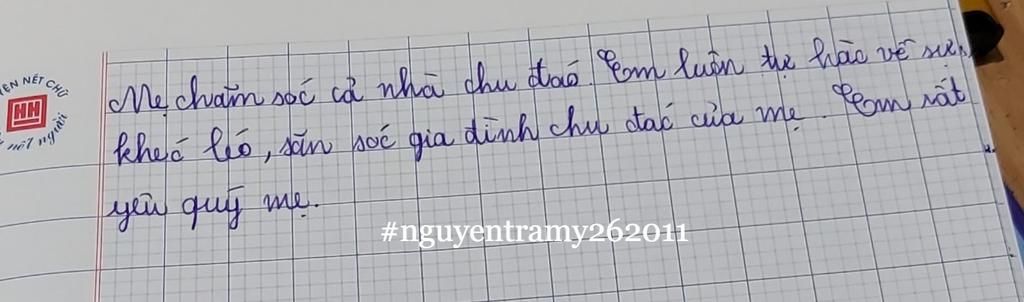 Mẹ chăm sóc cả nhà chu đaó. Em luôn tự hào về sự
kheć léo, săn soć gia đình chu đać của mẹ. Em rất
yêu quý mẹ.
#nguyentramy262011
ÈN NÉT CHỮ
HH
nết người